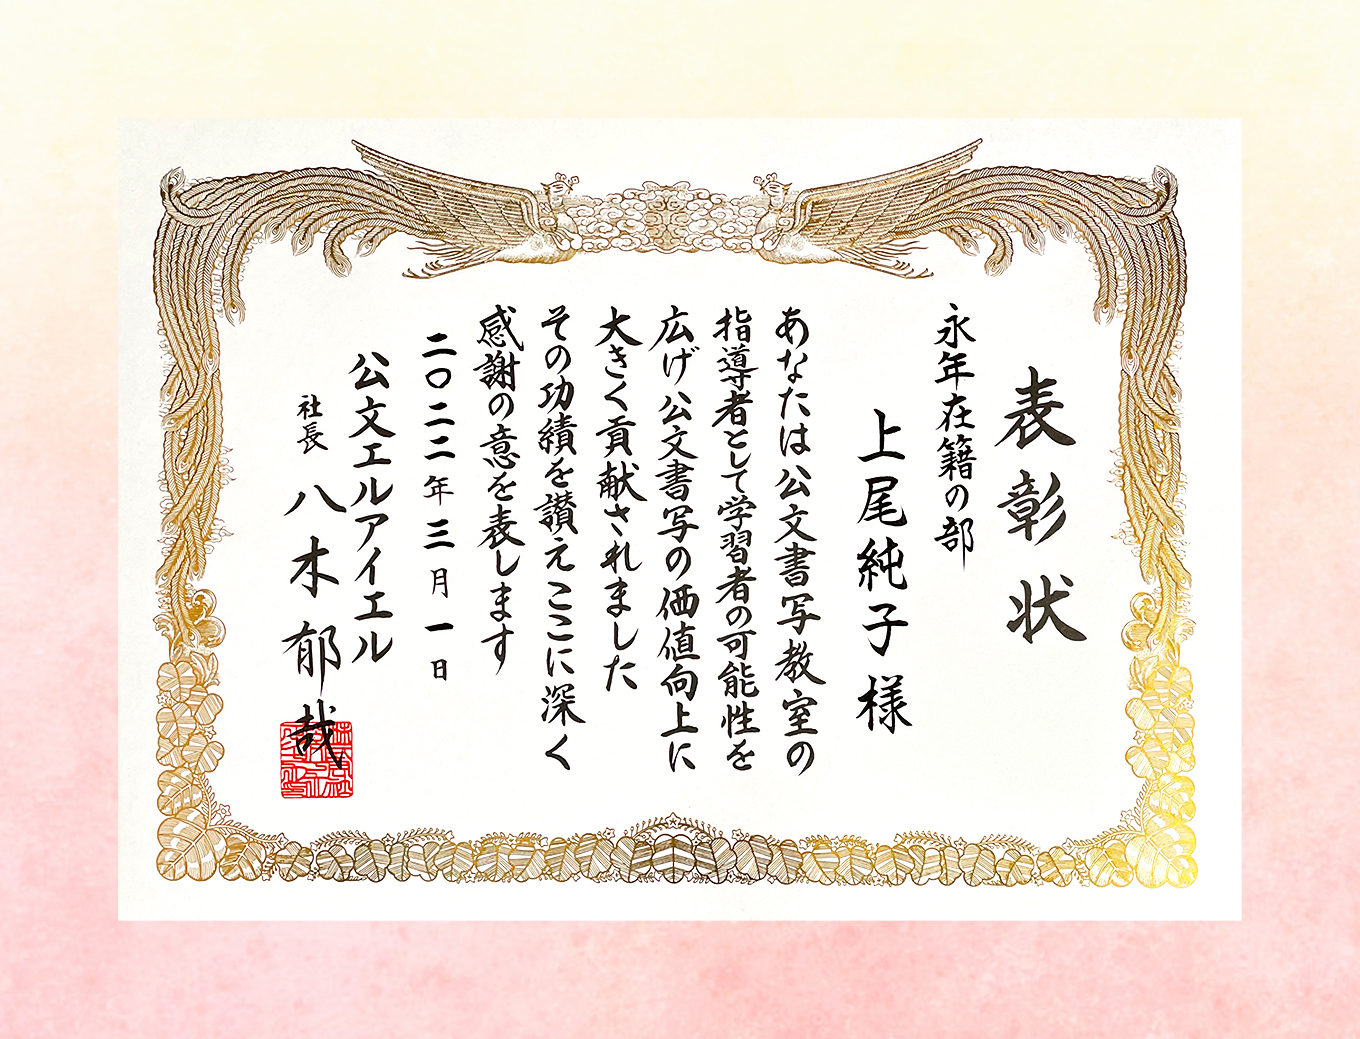 表彰状
永年在籍の部
上尾純子様
あなたは公文書写教室の
指導者として学習者の可能性を
広げ公文書写の価値向上に
大きく貢献されました
その功績を讃えここに深く
感謝の意を表します
二〇二二年三月一日
公文エルアイエル
社長 八木郁哉